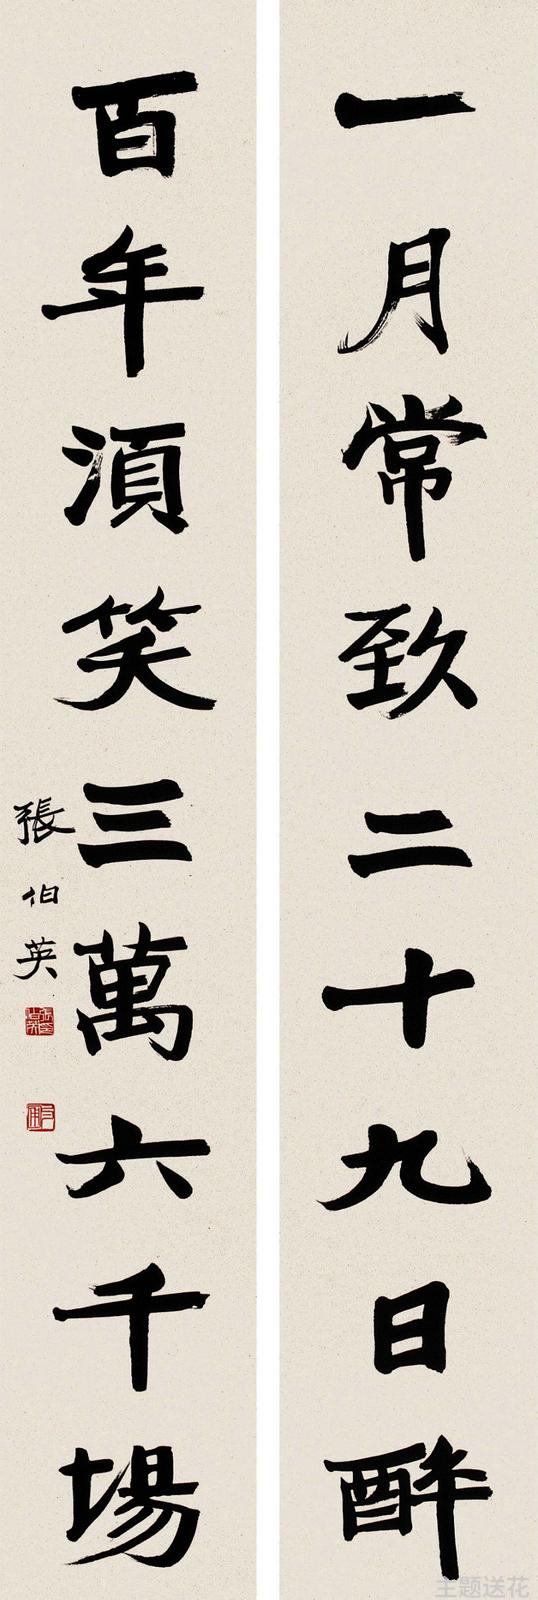 一月常致二十九日醉
百年須笑三萬六千場
張伯英
主题送花